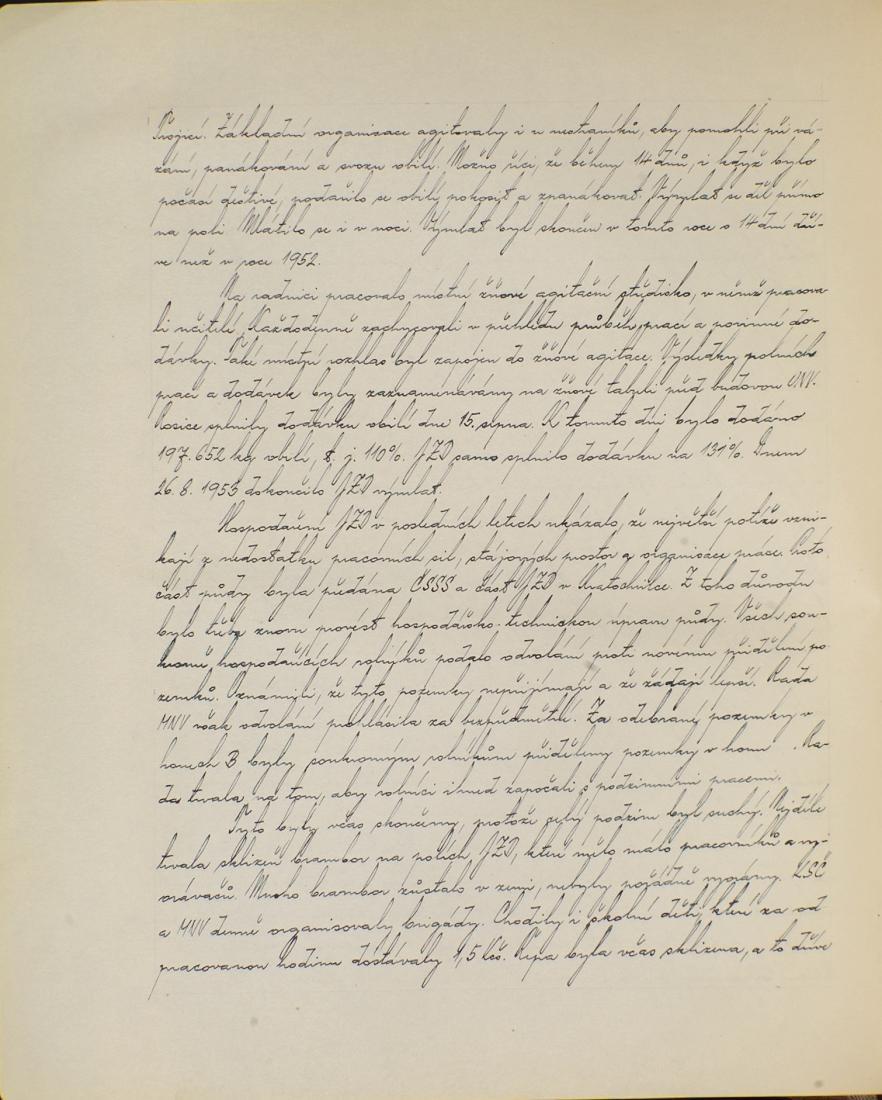 Trojici. Základní organisace agitovaly i u mechaniků, aby pomohli při vá-
zání, panákování a svozu obilí. Možno říci, že během 14 dnů, i když bylo
počasí deštivé, podařilo se obilí pokosit a zpanákovat. Výmlat se děl přímo
na poli. Mlátilo se i v noci. Výmlat byl skončen v tomto roce o 14 dní dří-
ve než v roce 1952.
Na radnici pracovalo místní žňové agitační středisko, v němž pracova-
li učitelé. Každodenně zachycovali v přehledu průběh prací a povinné do-
dávky. Také místní rozhlas byl zapojen do žňové agitace. Výsledky polních
prací a dodávek byly zaznamenávány na žňové tabuli před budovou MNV.
Rosice splnily dodávku obilí dne 15. srpna. K tomuto dni bylo dodáno
197.652 kg obilí, t. j. 110%. JZD samo splnilo dodávku na 131%. Dnem
26. 8. 1953 dokončilo JZD výmlat.
Hospodaření JZD v posledních letech ukázalo, že největší potíže vzni-
kají z nedostatku pracovních sil, stájových prostor a organisace práce. Proto
část půdy byla předána ČSSS a část JZD v Kratochvilce. Z toho důvodu
bylo třeba znovu provést hospodářsko-technickou úpravu půdy. Všech sou-
kromě hospodařících rolníků podalo odvolání proti novému přidělení po-
zemků. Oznámili, že tyto pozemky nepřijímají a že žádají lepší. Rada
MNV však odvolání prohlásila za bezpředmětné. Za odebrané pozemky v
honech B byly soukromým rolníkům přiděleny pozemky v honu . Ra-
da trvala na tom, aby rolníci ihned započali s podzimními pracemi.
Tyto byly včas skončeny, protože celý podzim byl suchý. Nejdéle
trvala sklizeň brambor na polích JZD, které mělo málo pracovníků a vy-
orávačů. Mnoho brambor zůstalo v zemi, nebyly pořádně vyorány. KSČ
a MNV denně organisovaly brigády. Chodily i školní děti, které za od
pracovanou hodinu dostávaly 1,5 Kčs. Řepa byla včas sklizena, a to dříve